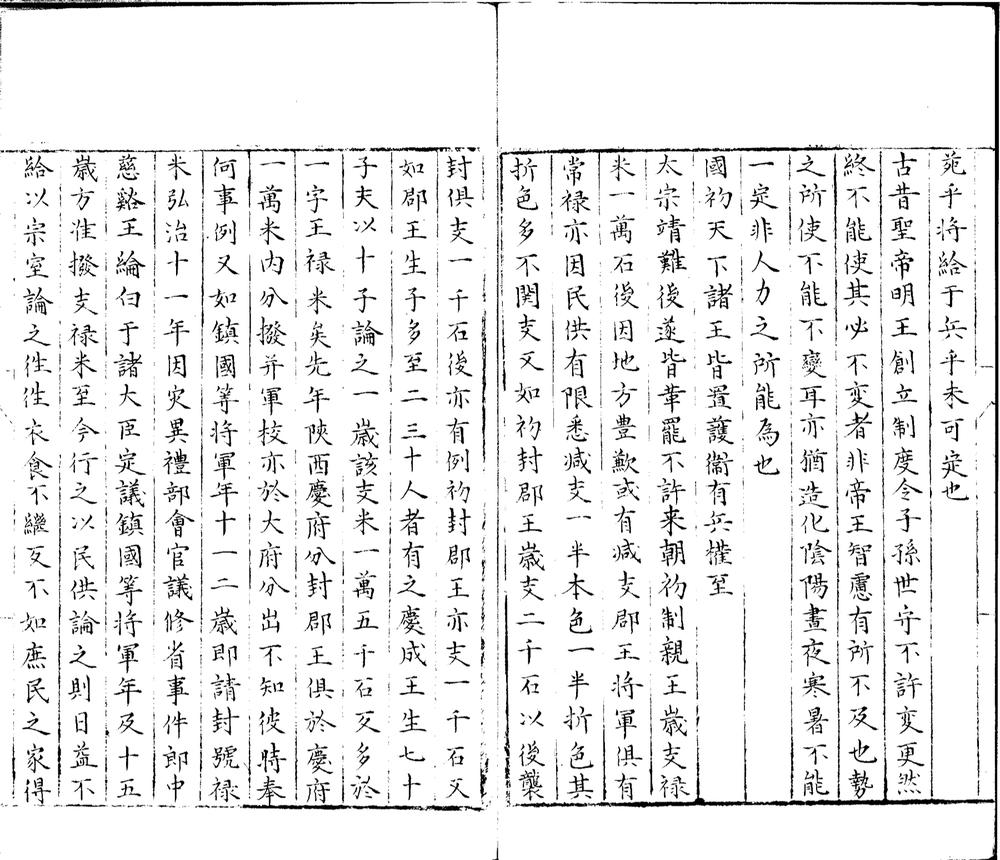 苑乎将給于兵乎未可定也
古昔聖帝明王創立制度令子孫世守不許变更然
終不能使其必不变者非帝王智慮有所不及也勢
之所使不能不變耳亦猶造化陰陽晝夜寒暑不能
一定非人力之所能為也
國初天下諸王皆置護衞有兵權至
太宗靖難後遂皆革罷不許来朝初制親王歲支禄
米一萬石後因地方豊歉或有减支郡王将軍俱有
常禄亦因民供有限悉减支一半本色一半折色其
折色多不関支又如初封郡王歲支二千石以後襲
封俱支一千石後亦有例初封郡王亦支一千石又
如郡王生子多至二三十人者有之慶成王生七十
子夫以十子論之一歲該支米一萬五千石又多於
一字王禄米矣先年陝西慶府分封郡王俱於慶府
一萬米内分撥并軍校亦於大府分出不知彼時奉
何事例又如鎮國等将軍年十一二歲即請封號禄
米弘治十一年因灾異禮部會官議修省事件郎中
慈谿王綸白于諸大臣定議鎮國等将軍年及十五
歲方准撥支禄米至今行之以民供論之則日益不
給以宗室論之徃徃衣食不繼又不如庶民之家得